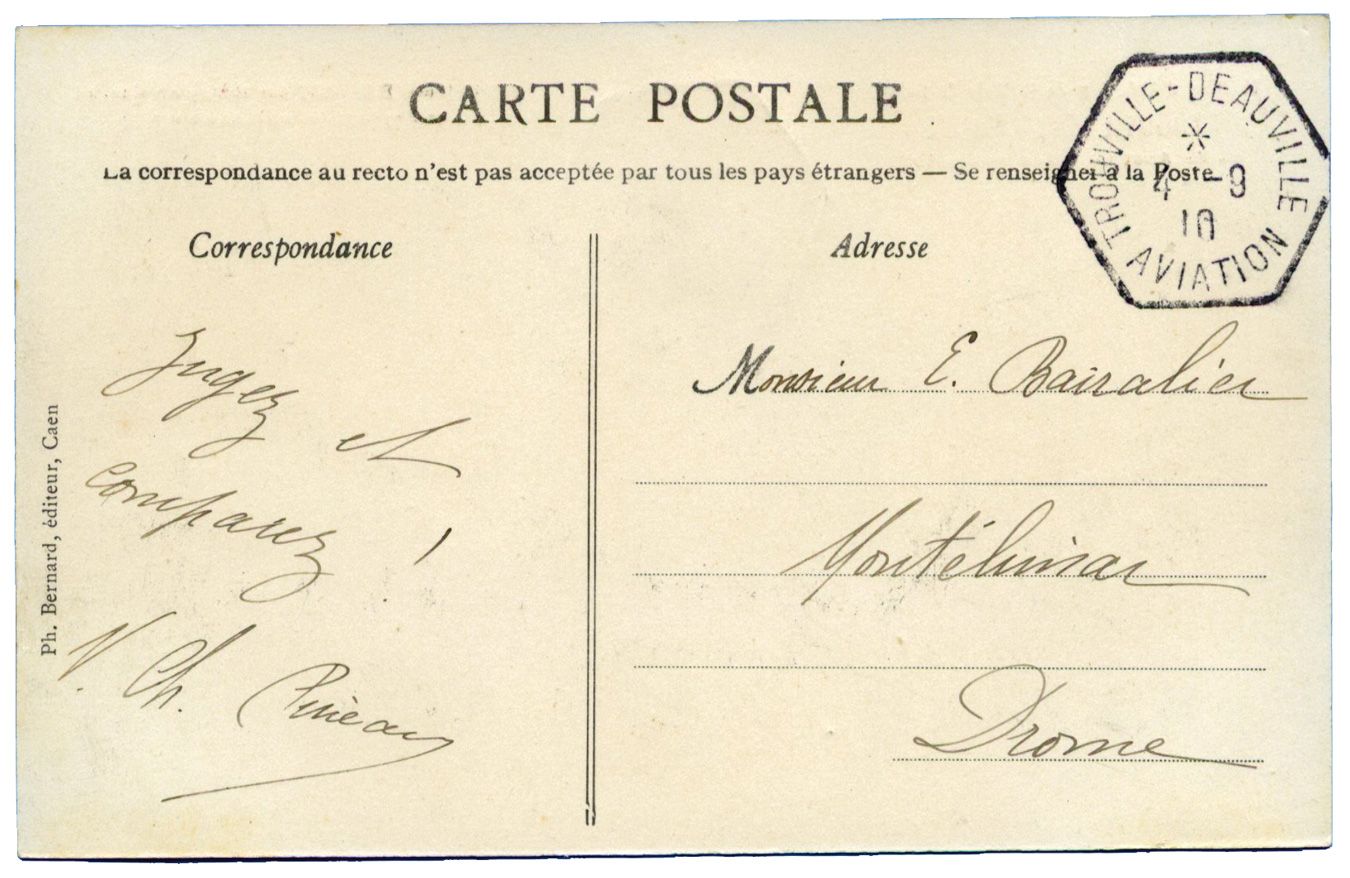 CARTE POSTALE
La correspondance au recto n'est pas acceptée par tous les pays étrangers — Se renseigner à la Poste
TROUVILLE-DEAUVILLE
*
4 -9
10
AVIATION
Correspondance
Jugez et
comparez !
V. Ch.
Ph. Bernard, éditeur, Caen
Adresse
Monsieur E.
Montélimar
Drome